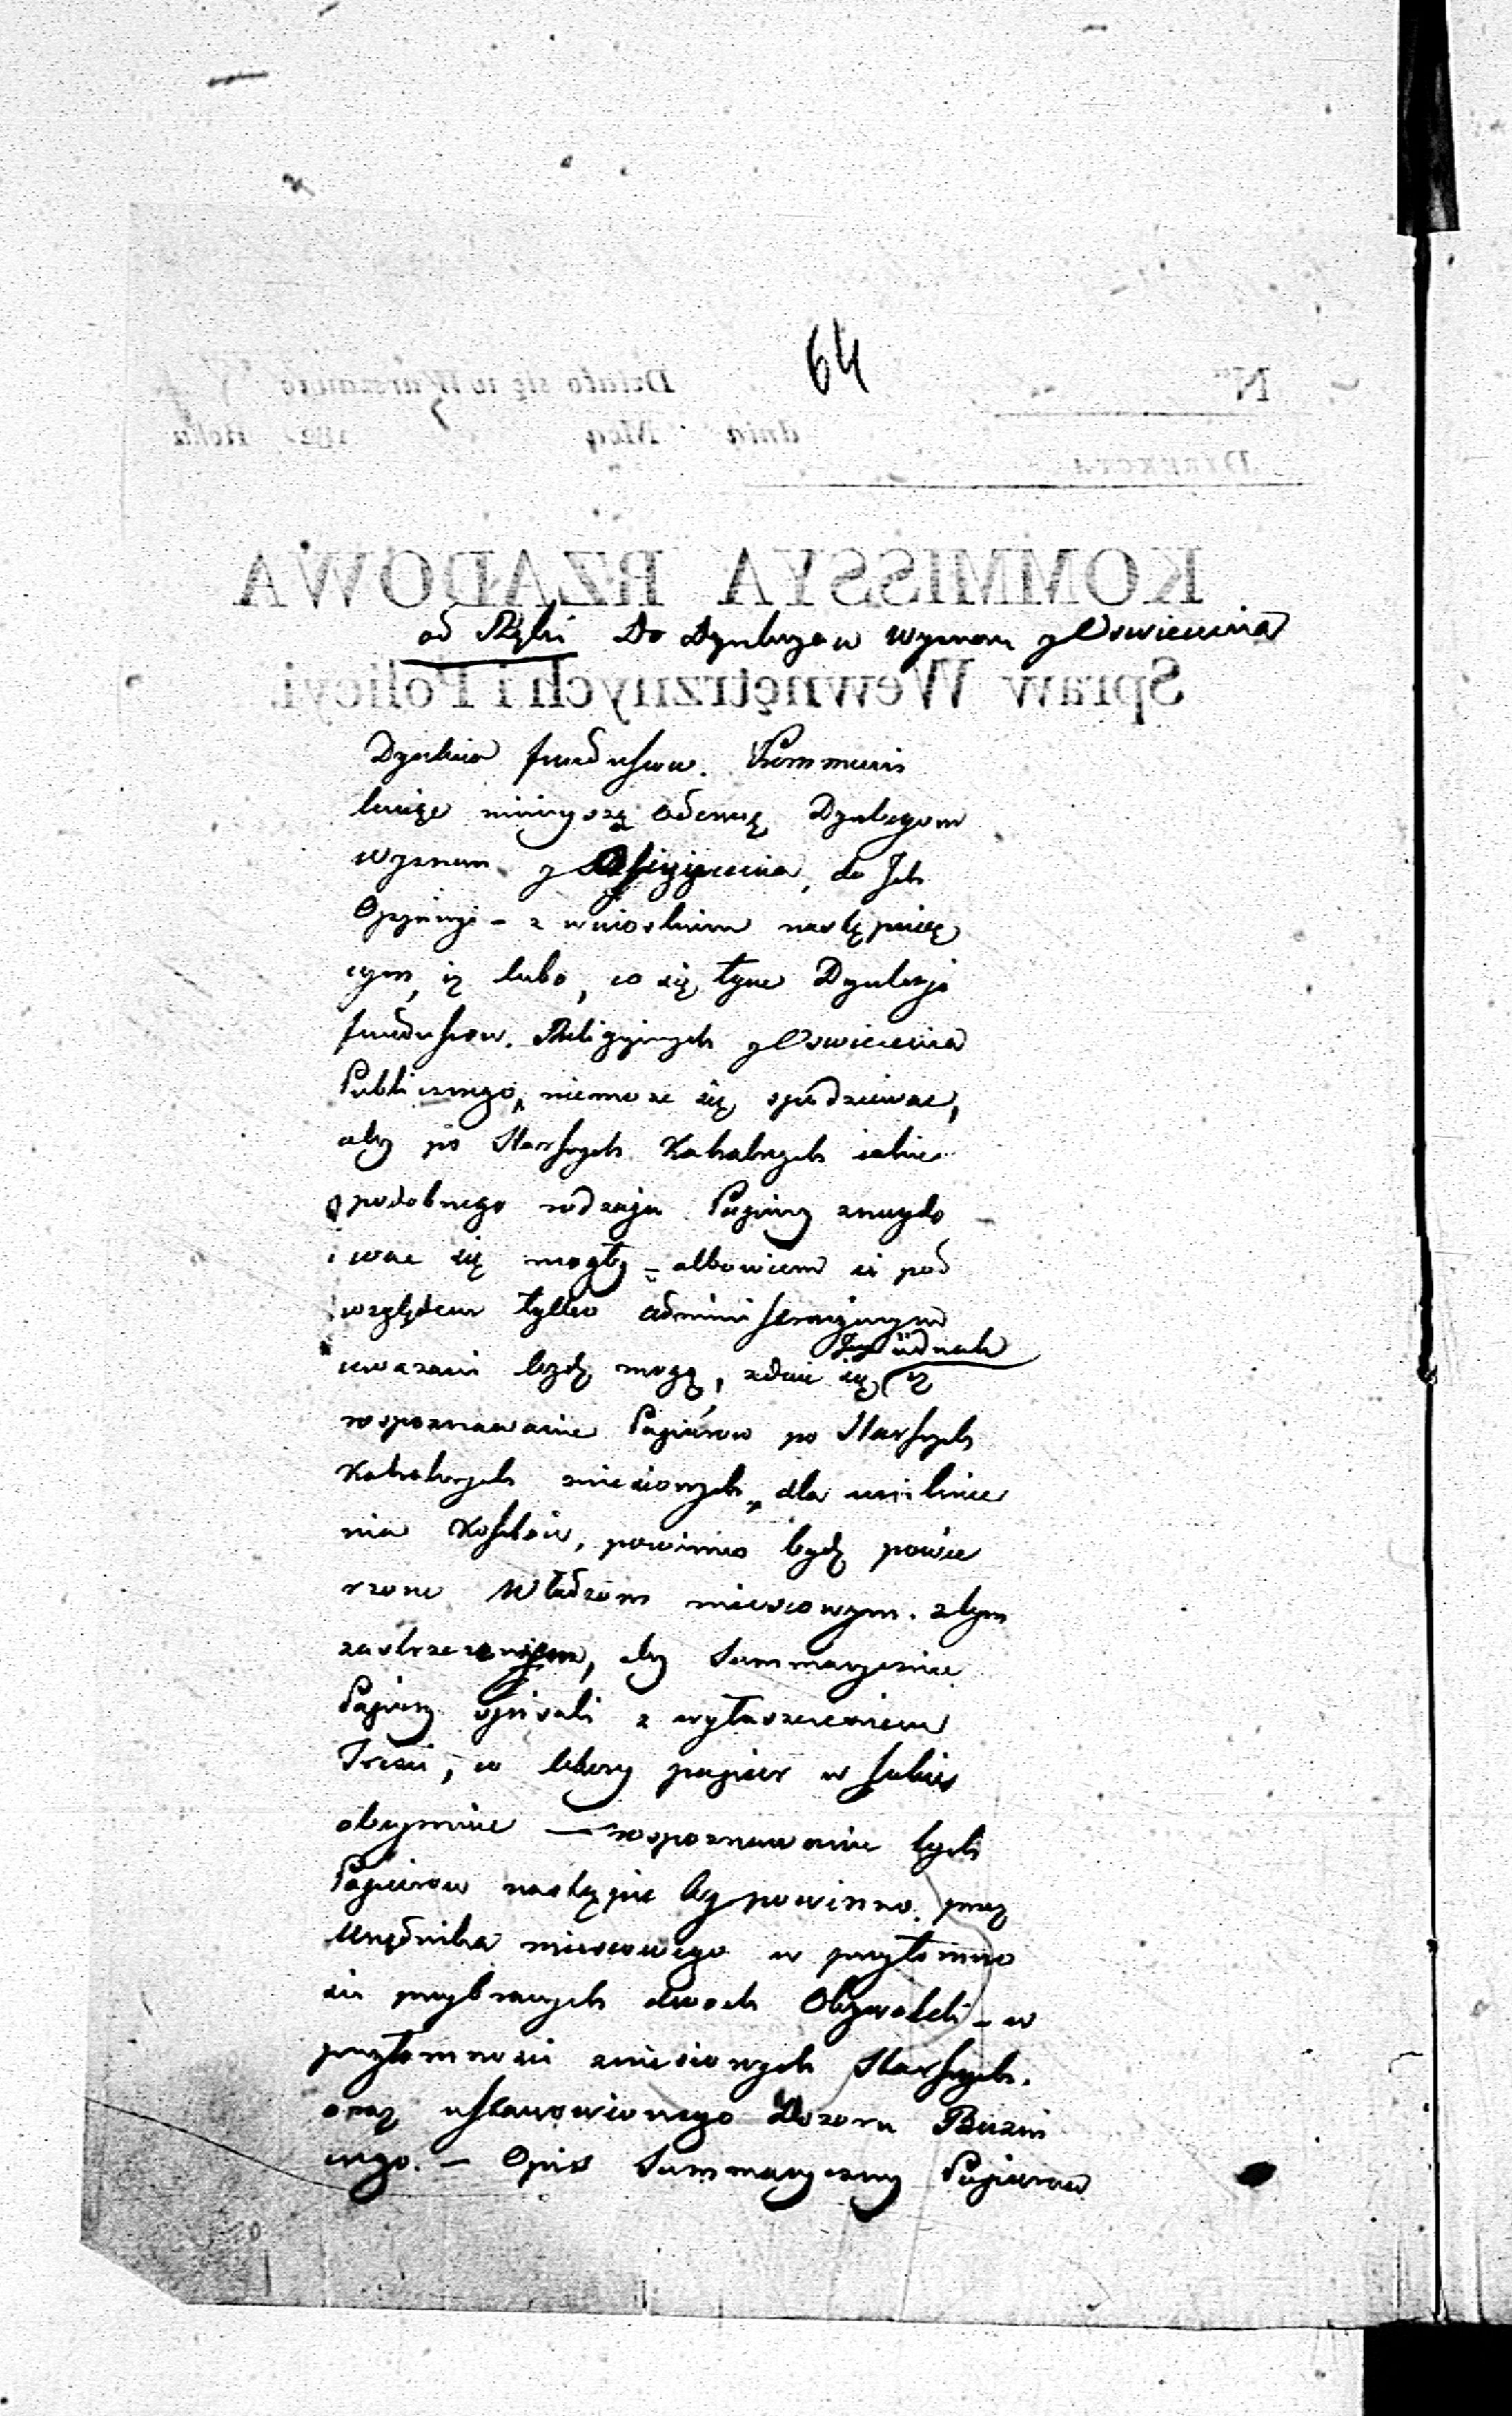 64
od Ręki Do Dyrekcyi Wyznań y Oswiecenia
Dyrekcya funduszow. Kommuni
kuiąc ninieyszą Odezwę Dyrekcyom
wyznan y Oświecenia, do Ich
Opinyi – z wnioskiem nastę puią
cym, iż lubo, co się tycze Dyrekcyi
funduszow. Religiynych y Oswiecenia
Publicznego, niemoze się spodziewac,
aby po Starszych Kahalnych iakie
podobnego rodzaju Papiery znaydo
wac się mogły – albowiem ci pod
względem tylko administracyinym
iednak
uwazani bydź mogą, zdaie się iż
rospoznawanie Papierow po Starszych
Kahalnych zniesionych, dla uniknie
nia Kosztow, powinno bydź powie
rzone Władzom mieyscowym. z tym
zastrzezeniem, aby Summarycznie
Papiery spisali z wytłaszczeniem
Tresci, co ktory papier w sobie
obeymuie — rospoznawanie tych
Papierow nastąpic by powinno. przez
Urzędnika mieyscowego w przytomno
sci przybranych dwoch Obywateli – w
przytomnosci zniesionych Starszych.
oraz ustanowionego Dozoru Bużni
cznego. – Opis Summaryczny Papierow